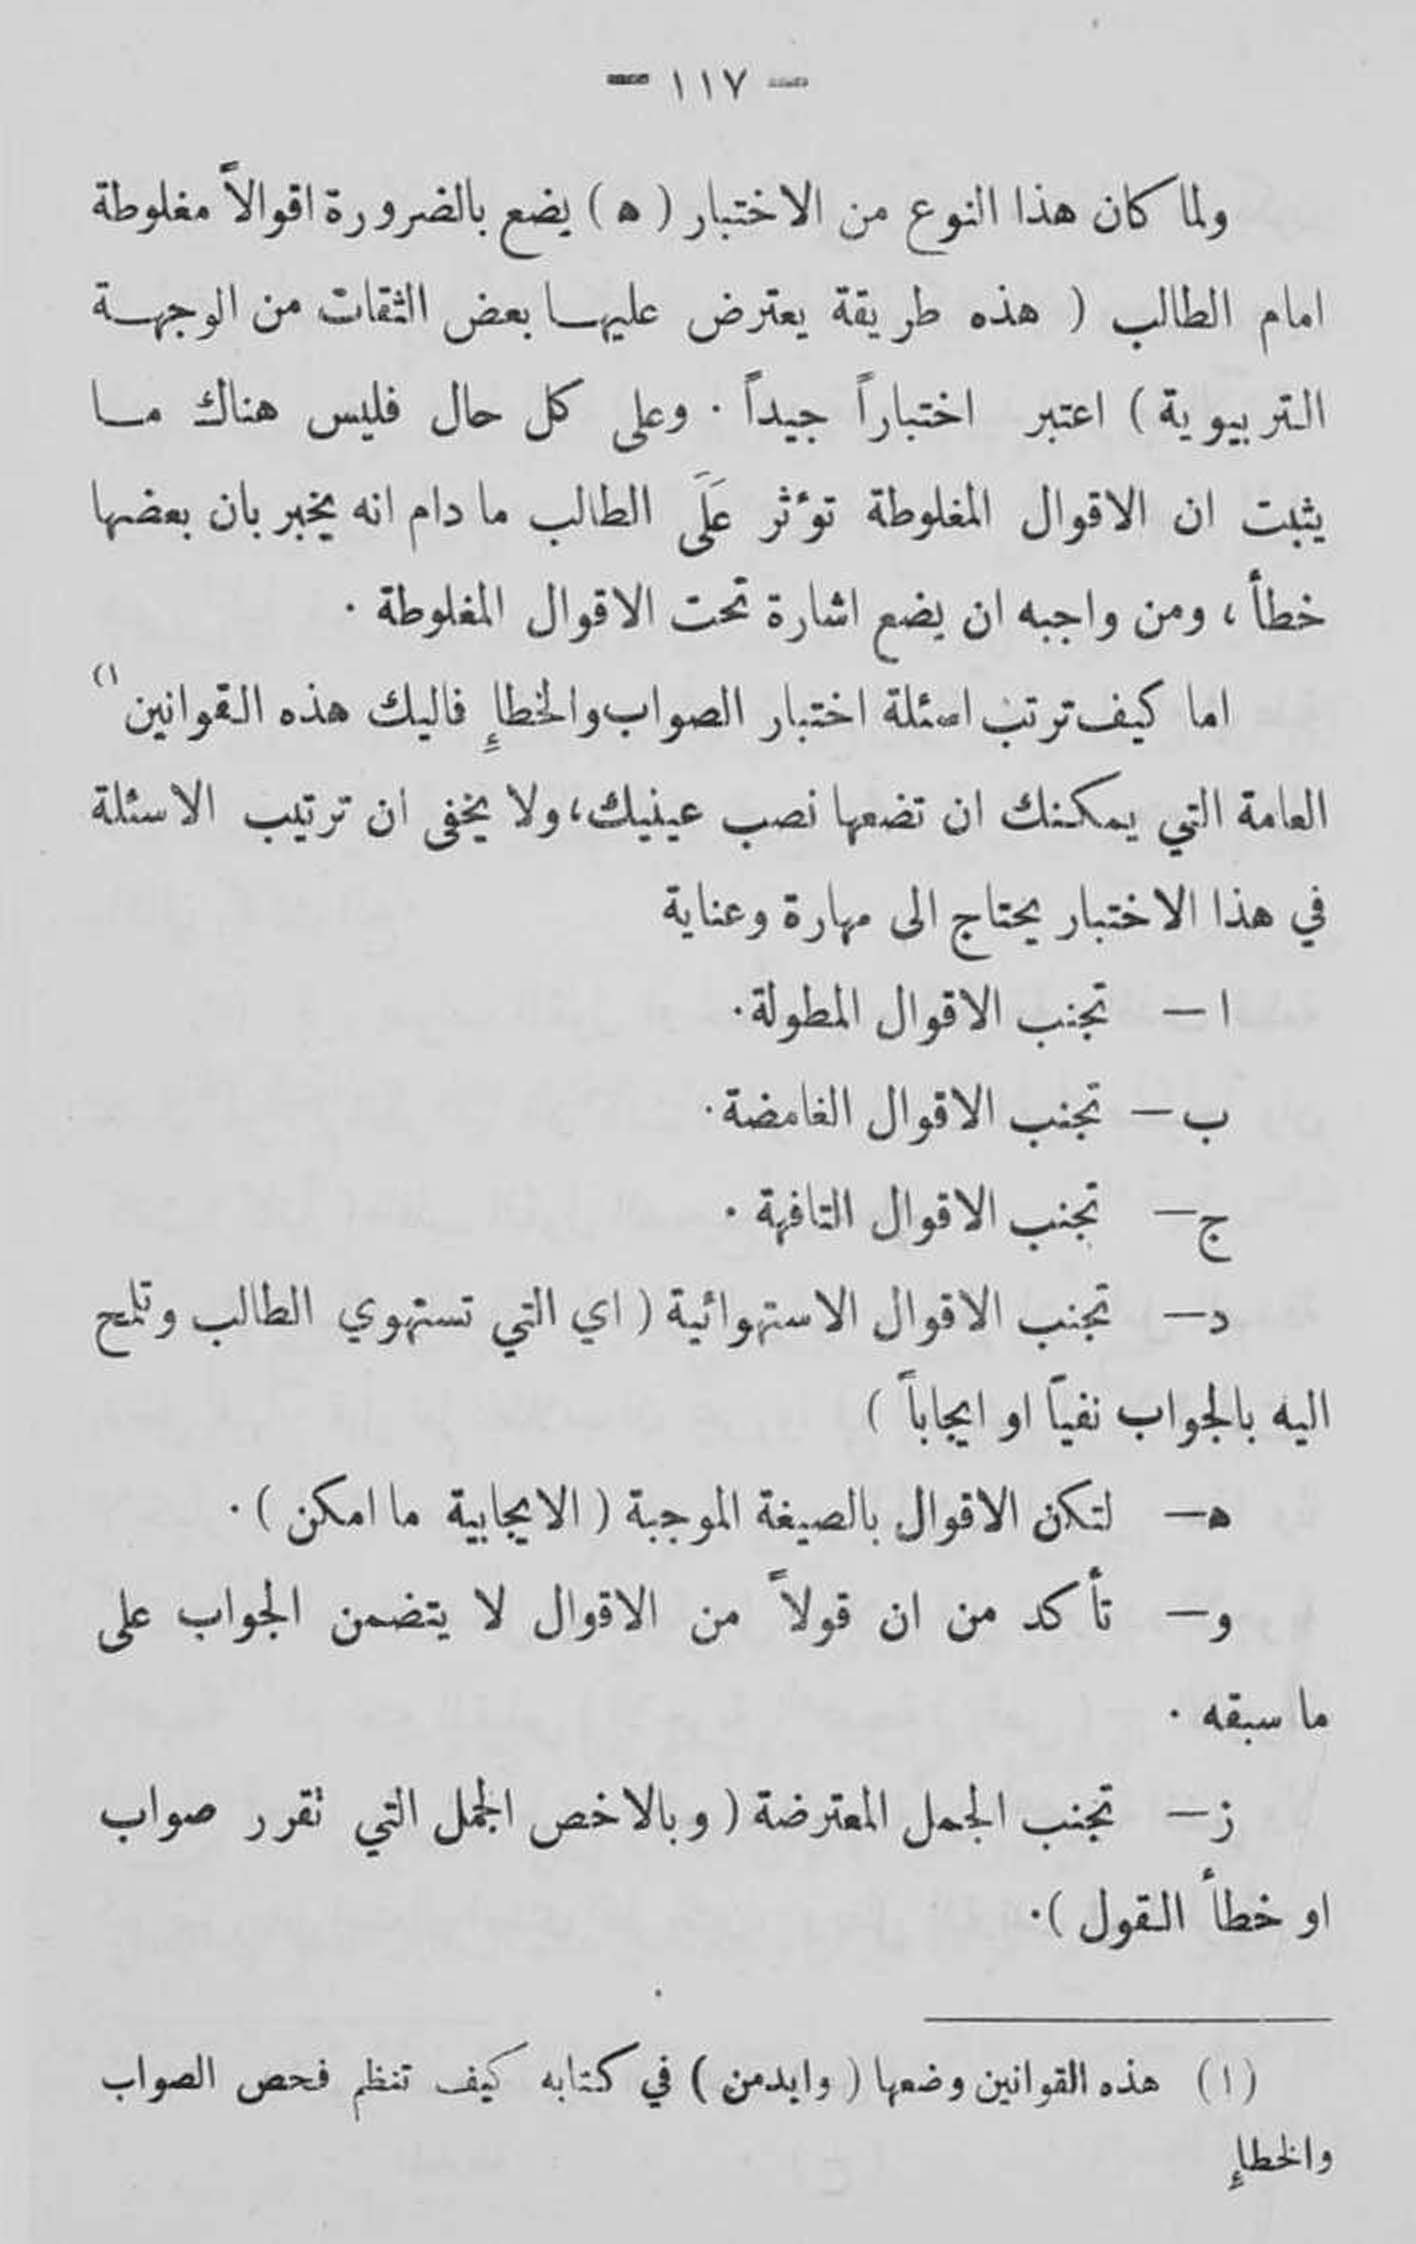 — ١١٧ —
ولما كان هذا النوع من الاختبار ( ه ) يضع بالضرورة اقوالاً مغلوطة
امام الطالب ( هذه طريقة يعترض عليها بعض الثقات من الوجهة
التربيوية ) اعتبر اختباراً جيداً . وعلى كل حال فليس هناك ما
يثبت ان الاقوال المغلوطة تؤثر عَلَى الطالب ما دام انه يخبر بان بعضها
خطأ ، ومن واجبه ان يضع اشارة تحت الاقوال المغلوطة .
اما كيف ترتب اسئلة اختبار الصواب والخطإِ فاليك هذه القوانين ١)
العامة التي يمكنك ان تضعها نصب عينيك، ولا يخفى ان ترتيب الاسئلة
في هذا الاختبار يحتاج الى مهارة وعناية
ا — تجنب الاقوال المطولة.
ب — تجنب الاقوال الغامضة.
ج — تجنب الاقوال التافهة .
د — تجنب الاقوال الاستهوائية ( اي التي تستهوي الطالب وتلمح
اليه بالجواب نفياً او ايجاباً )
ه — لتكن الاقوال بالصيغة الموجبة ( الايجابية ما امكن ) .
و — تأكد من ان قولاً من الاقوال لا يتضمن الجواب على
ما سبقه .
ز — تجنب الجمل المعترضة ( وبالاخص الجمل التي تقرر صواب
او خطأ القول ).
(١) هذه القوانين وضعها ( وايدمن ) في كتابه كيف تنظم فحص الصواب
والخطإِ